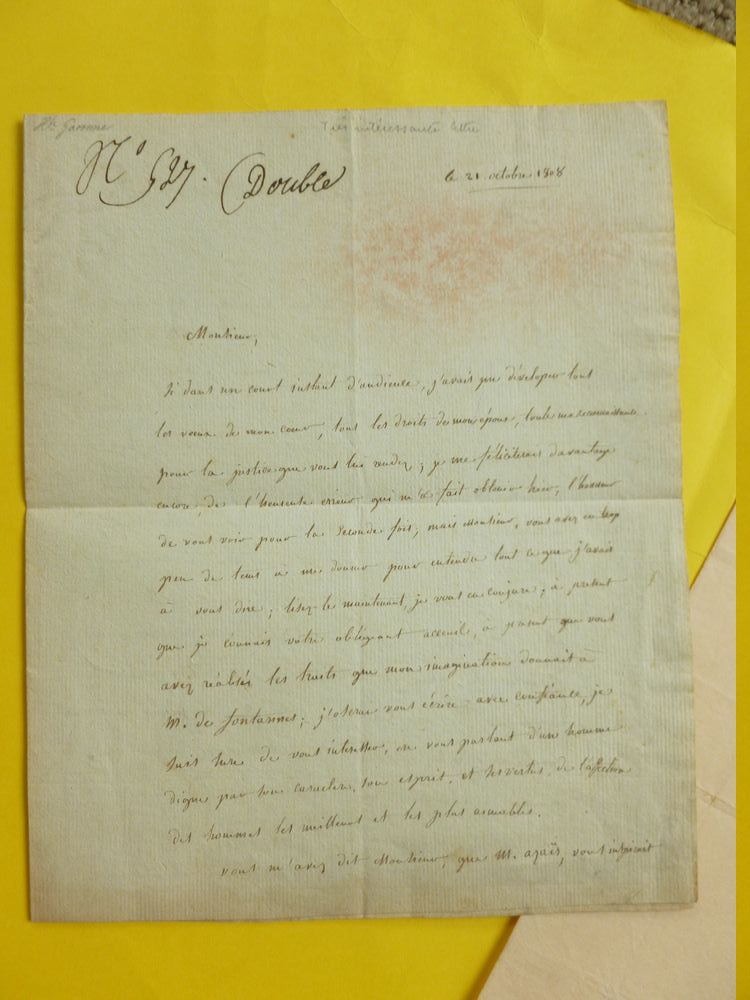 Hte Garonne
Très intéressante lettre
N° 527. Double
le 21 octobre 1808
Monsieur,
Si dans un court instant d'audience, j'avais pu développer tous
les vœux de mon cœur, tous les droits de mon époux, toute ma reconnaissance
pour la justice que vous lui rendez; je me féliciterais davantage
encore, de l'heureuse erreur qui m'a fait obtenir hier, l'honneur
de vous voir pour la seconde fois; mais Monsieur, vous avez eu trop
peu de tems à me donner pour entendre tout ce que j'avais
à vous dire; lisez-le maintenant, je vous en conjure; à présent
que je connais votre obligeant accueil, à présent que vous
avez réalisé les traits que mon imagination donnait à
M. de fontannes; j'oserai vous écrire avec confiance, je
suis sure de vous intéresser, en vous parlant d'un homme
digne par son caractere, son esprit, et ses vertus, de l'affection
des hommes les meilleurs et les plus aimables.
vous m'avez dit Monsieur, que M. azaïs, vous inspirait